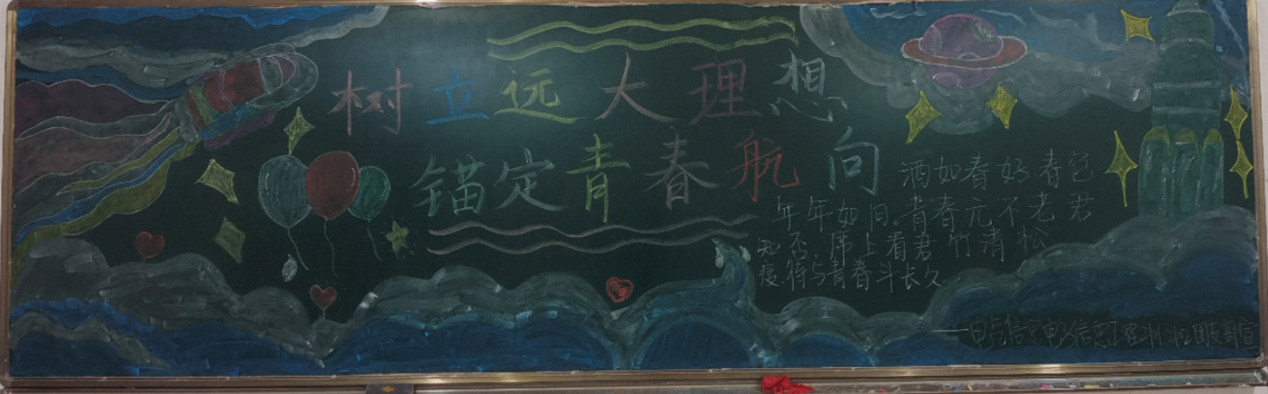 树立远大理想
锚定青春航向
酒如春好春色
年年如旧青春元不老君
知否席上看君竹清松
瘦待与青春斗长久